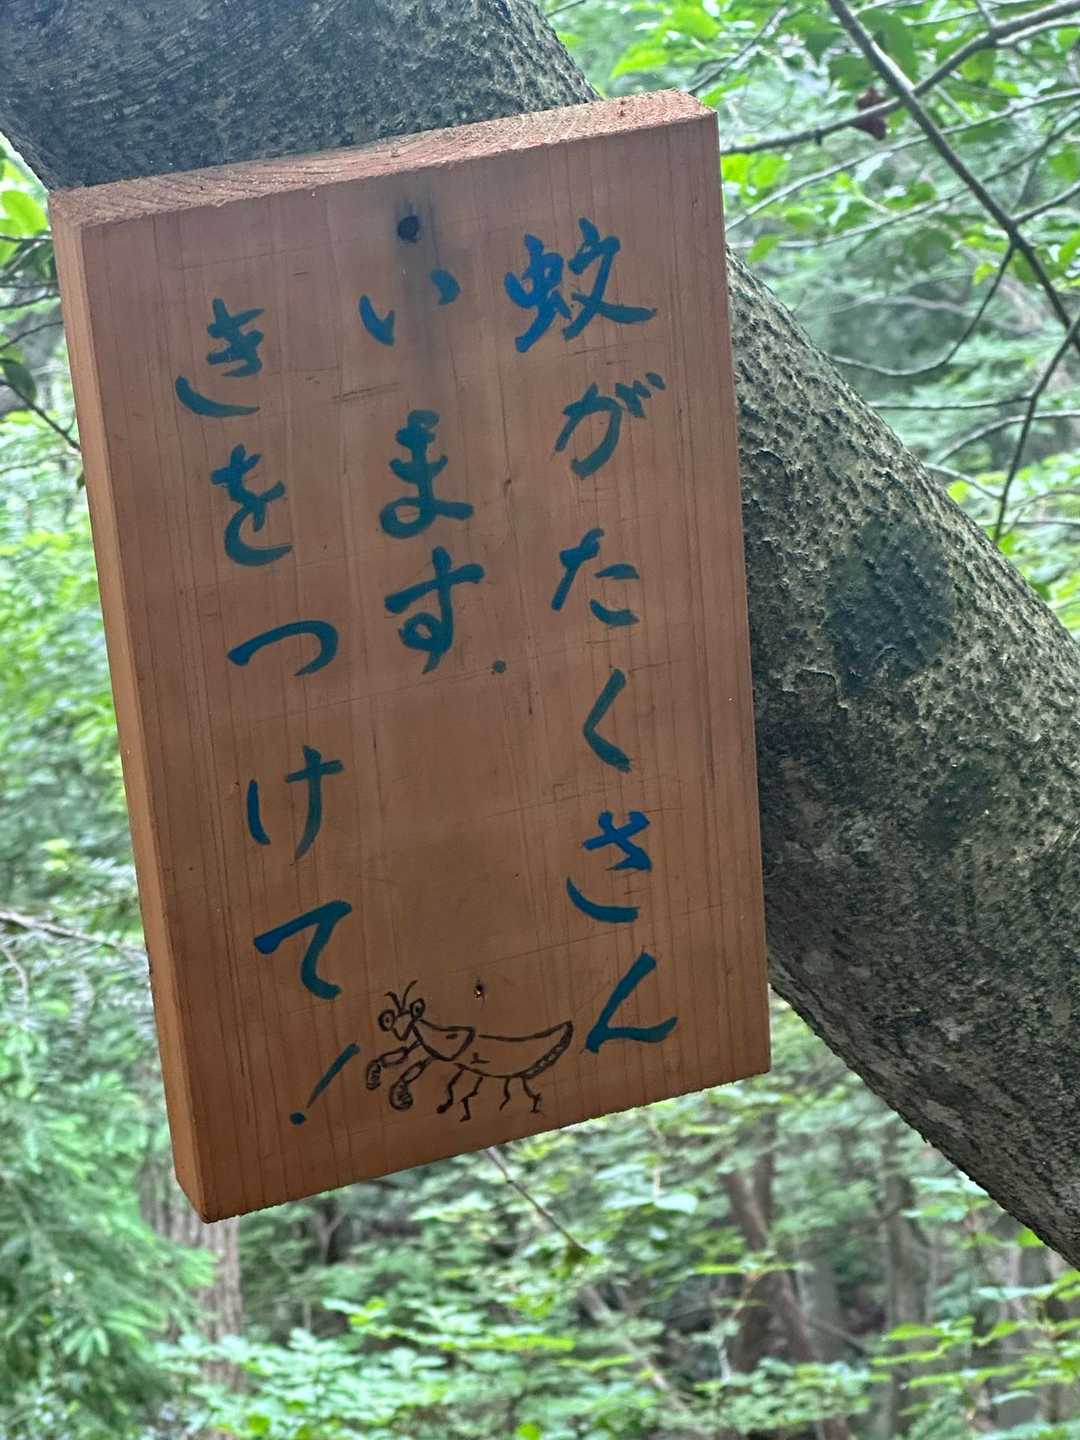 蚊がたくさん
います.
きをつけて!